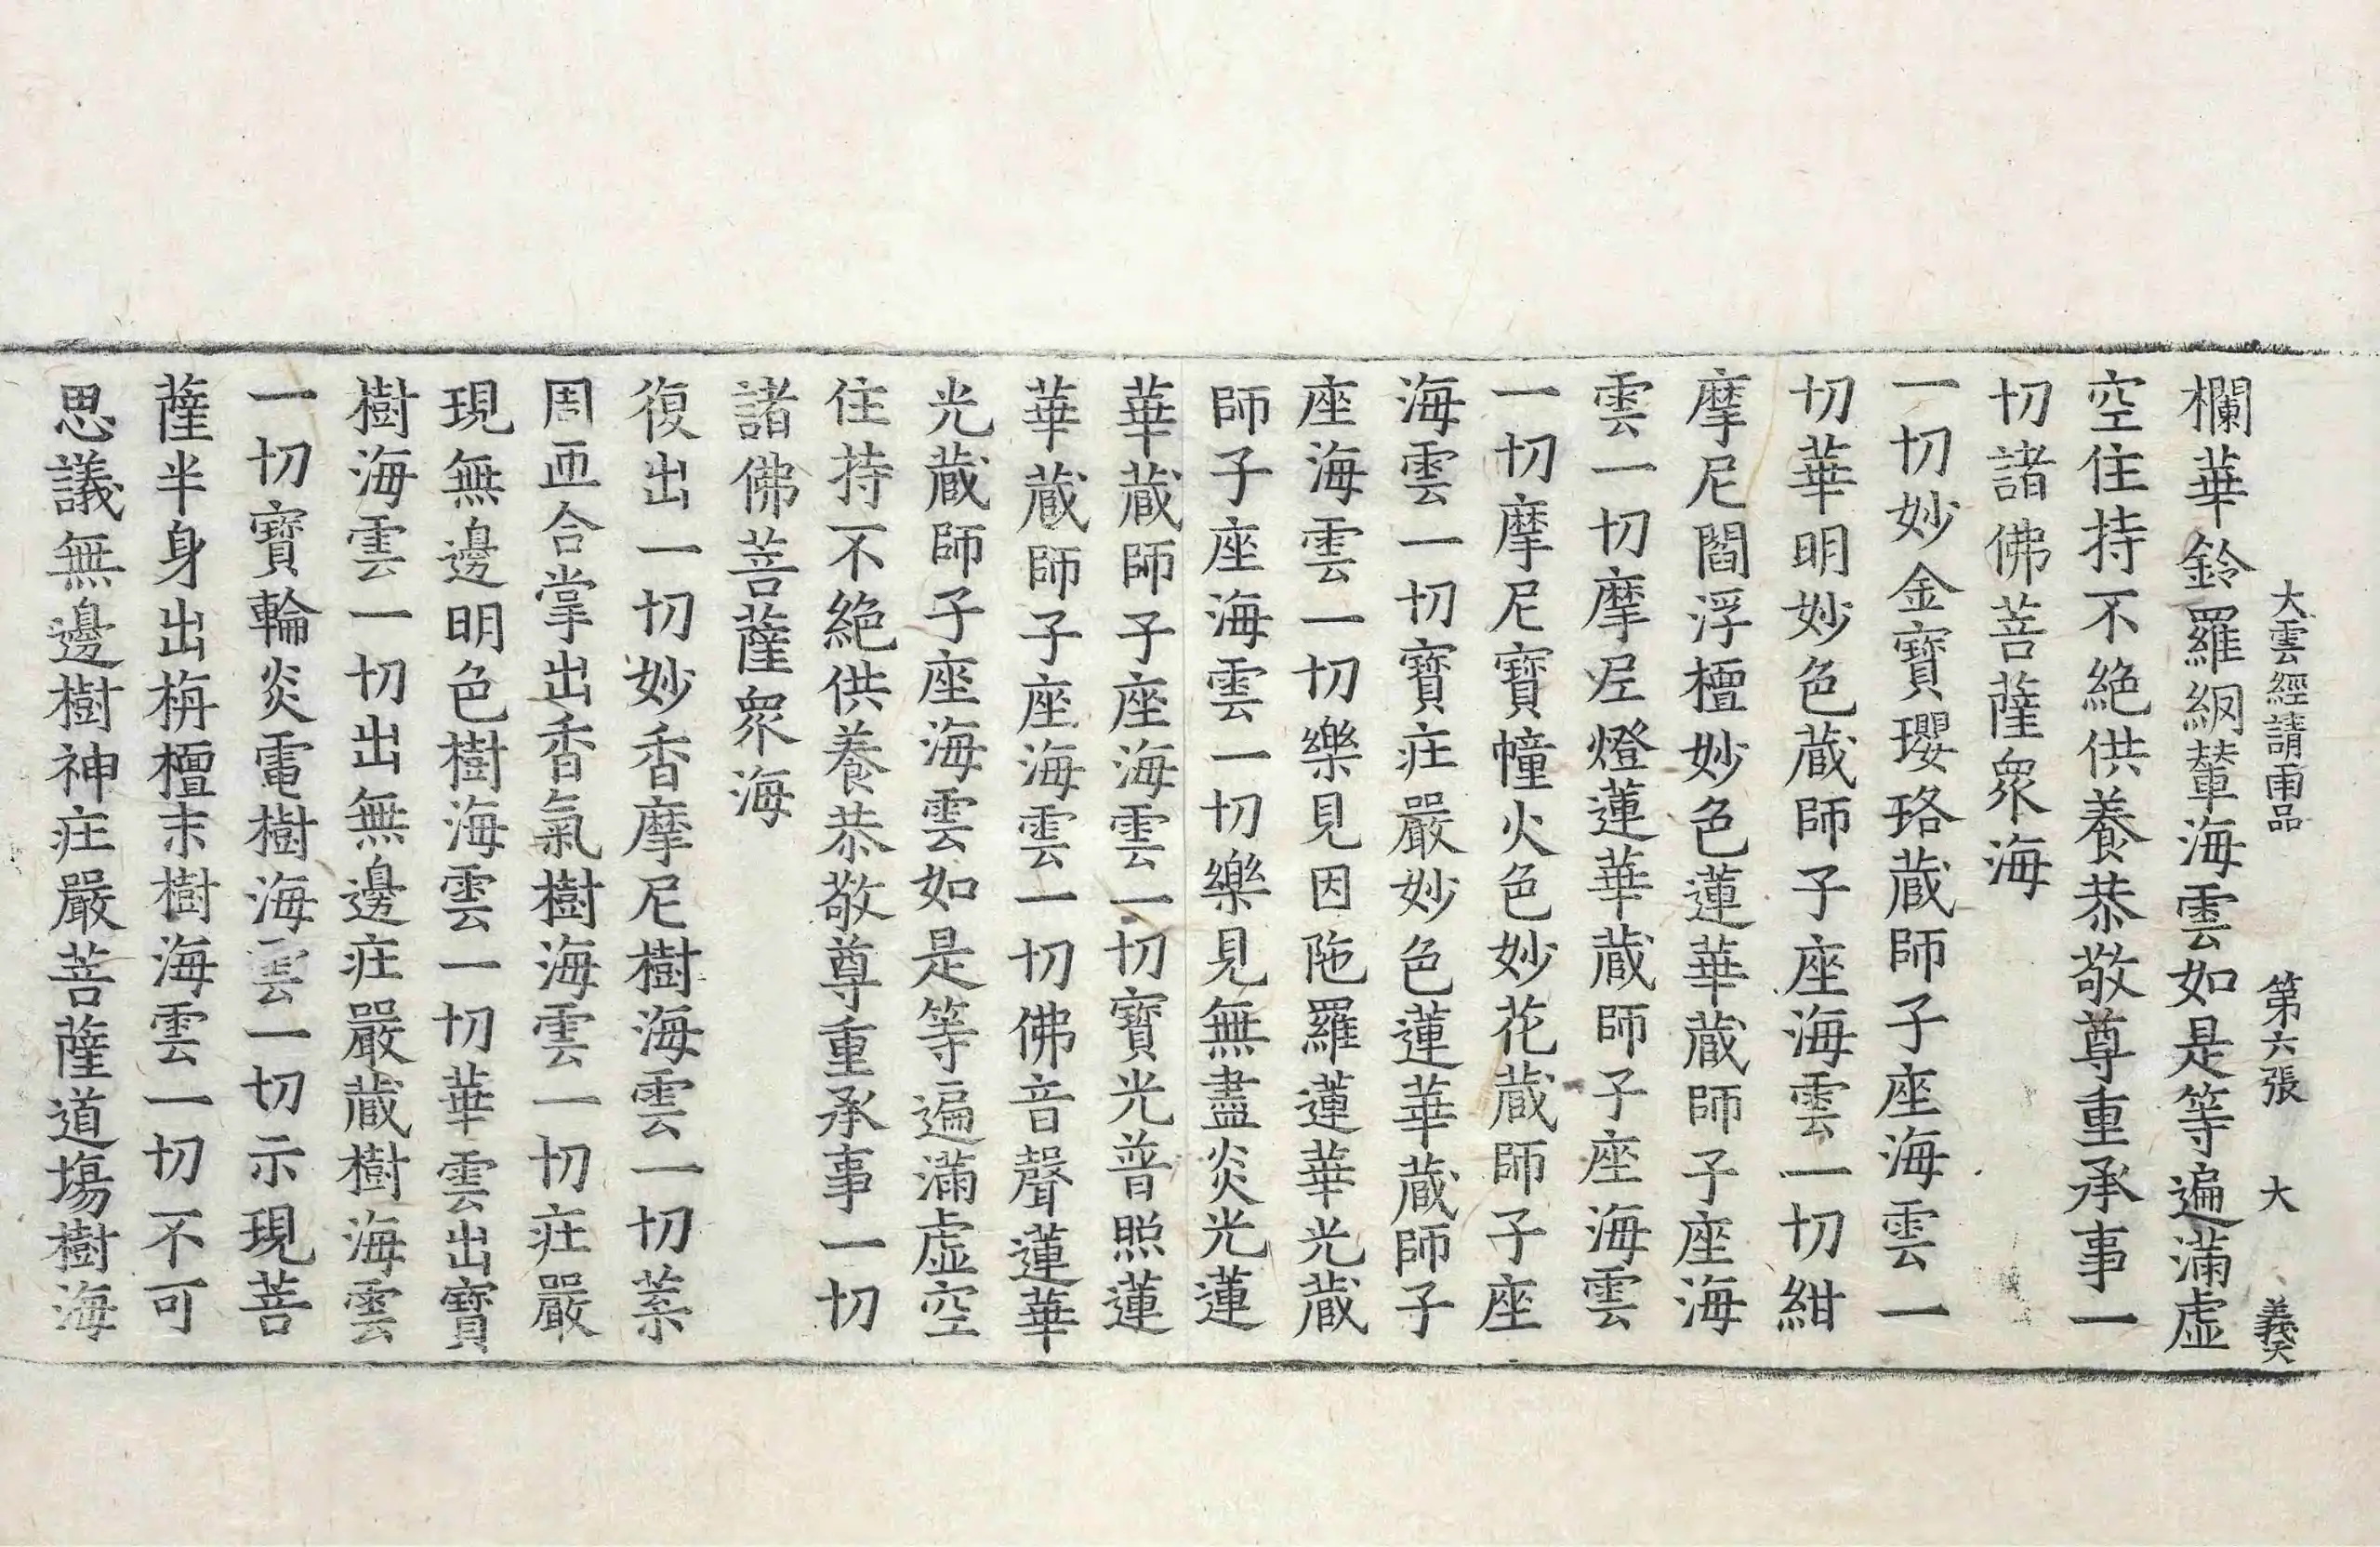 大雲經請雨品 第六張 大 義天
欄華鈴羅網輦海雲如是等遍滿虛
空住持不絶供養恭敬尊重承事一
切諸佛菩薩衆海
一切妙金寶瓔珞蔵師子座海雲一
切華明妙色蔵師子座海雲一切紺
摩尼閻浮檀妙色蓮華蔵師子座海
雲一切摩尼燈蓮華蔵師子座海雲
一切摩尼寶幢火色妙花蔵師子座
海雲一切寶庄嚴妙色蓮華蔵師子
座海雲一切樂見因陁羅蓮華光蔵
師子座海雲一切樂見無盡炎光蓮
華蔵師子座海雲一切寶光普照蓮
華蔵師子座海雲一切佛音聲蓮華
光蔵師子座海雲如是等遍滿虛空
住持不絶供養恭敬尊重承事一切
諸佛菩薩衆海
復出一切妙香摩尼樹海雲一切葉
周帀合掌出香氣樹海雲一切庄嚴
現無邊明色樹海雲一切華雲出寶
樹海雲一切出無邊庄嚴蔵樹海雲
一切寶輪炎電樹海雲一切示現菩
薩半身出栴檀末樹海雲一切不可
思議無邊樹神庄嚴菩薩道場樹海